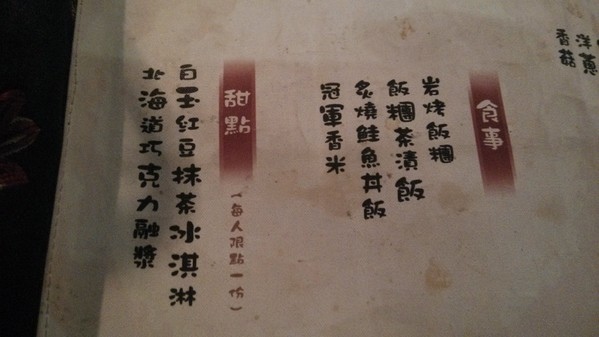 洋蔥
香菇
食事
岩烤飯糰
飯糰茶漬飯
炙燒鮭魚丼飯
冠軍香米
甜點
(每人限點一份)
白玉紅豆抹茶冰淇淋
北海道巧克力融漿